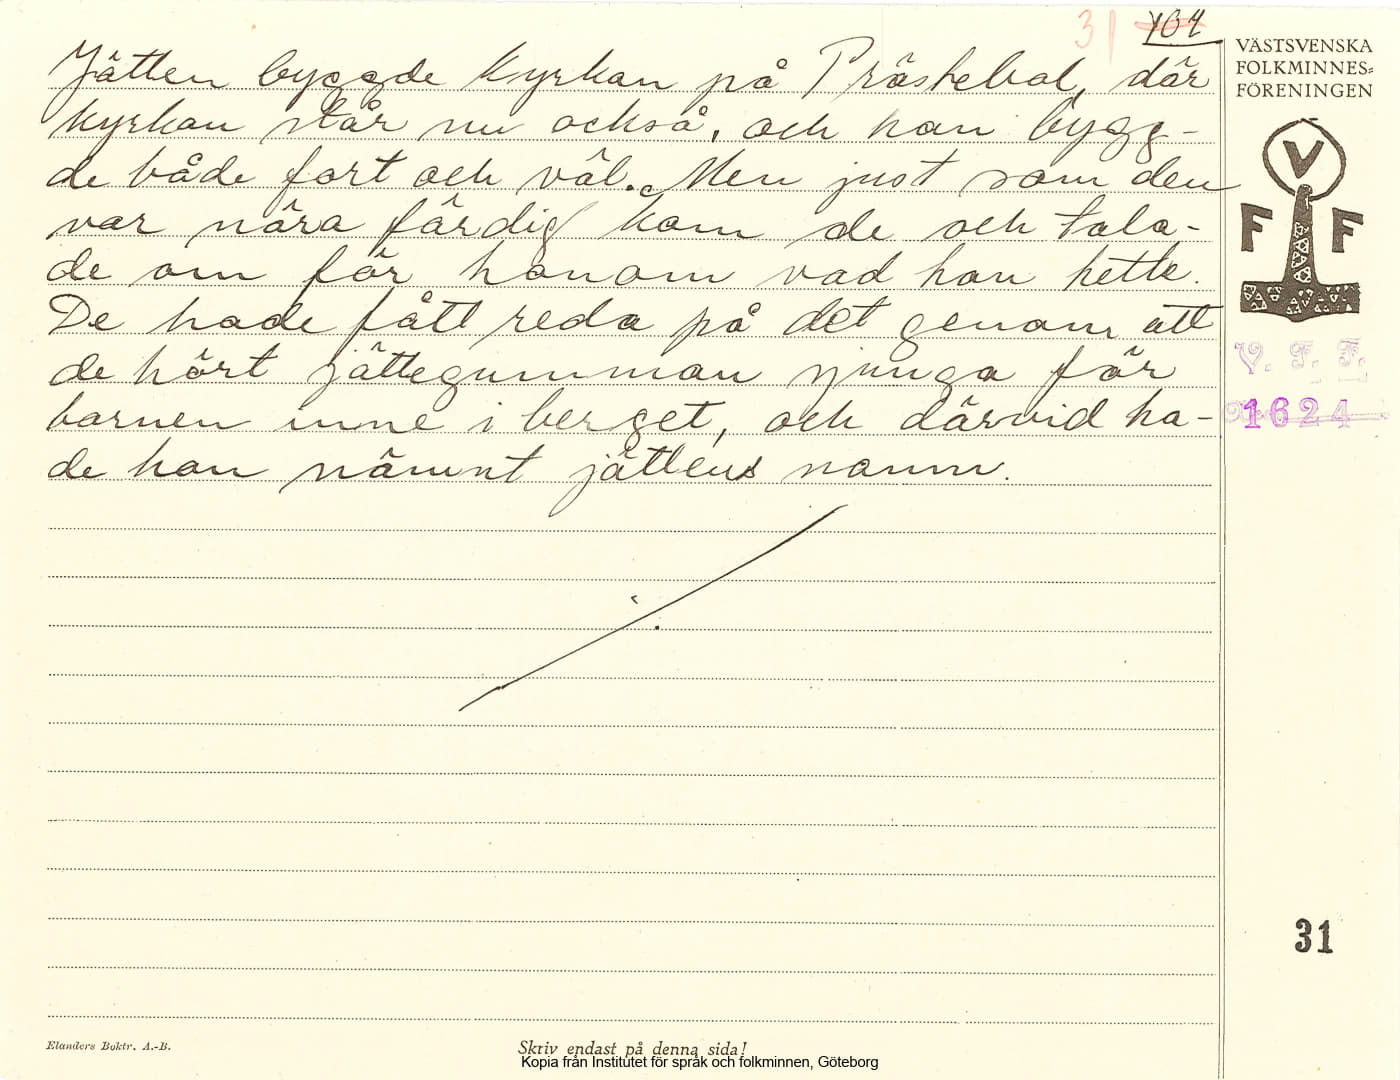 31 104
Jätten byggde kyrkan på Prästebol, där
kyrkan står nu också, och han bygg-
de både fort och väl. Men just som den
var nära färdig kom de och tala-
de om för honom vad han hette.
De hade fått reda på det genom att
de hört jättegumman sjunga för
barnen inne i berget, och därvid ha-
de hon nämnt jättens namn.
VÄSTSVENSKA
FOLKMINNES-
FÖRENINGEN
V
F F
V. F. F.
1624
31
Elanders Boktr. A.-B.
Skriv endast på denna sida!
Kopia från Institutet för språk och folkminnen, Göteborg